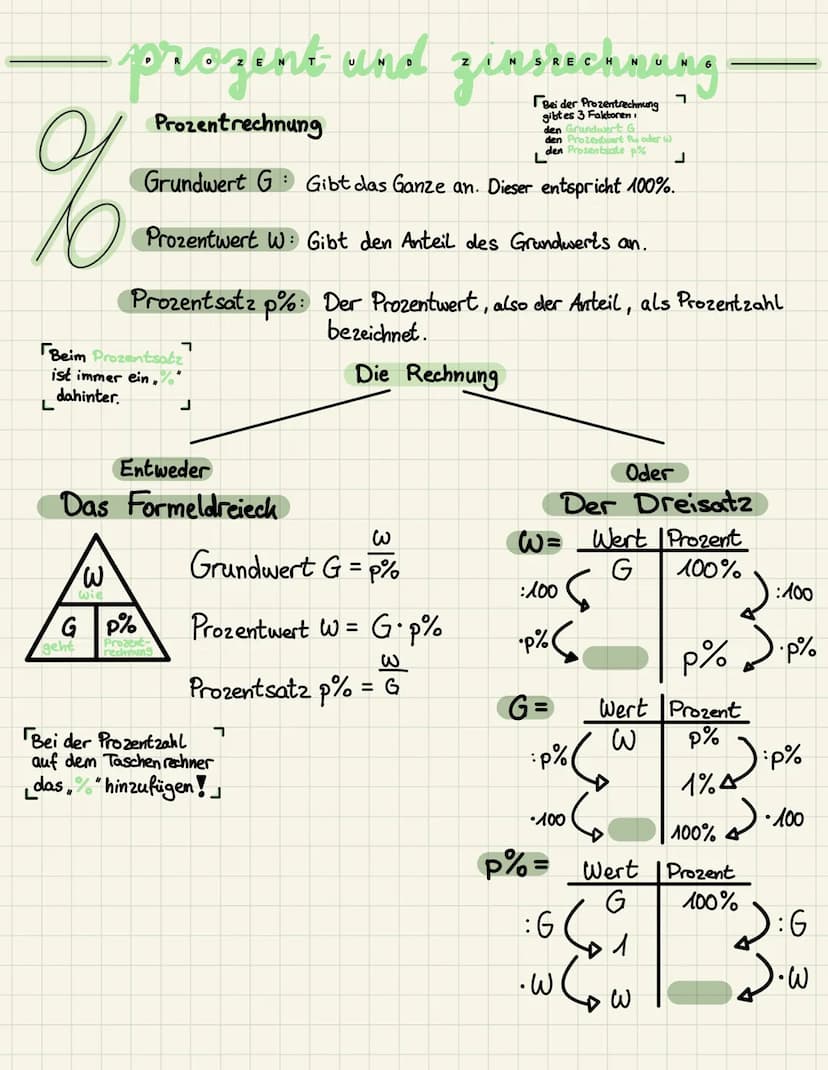 prozent- und zinsrechnung
PROZENT UND ZINSRECHNUNG
Prozentrechnung
Bei der Prozentrechnung
gibt es 3 Faktoren:
den Grundwert G
den Prozentwert Pw oder W
den Prozentsatz p%
%
Grundwert G: Gibt das Ganze an. Dieser entspricht 100%.
Prozentwert W: Gibt den Anteil des Grundwerts an.
Prozentsatz p%: Der Prozentwert, also der Anteil, als Prozentzahl
bezeichnet.
Beim Prozentsatz
ist immer ein „%"
dahinter.
Die Rechnung
Entweder
Das Formeldreieck
W
wie
G p%
geht Prozent-
rechnung
Grundwert G = W/p%
Prozentwert W = G·p%
Prozentsatz p% = W/G
Bei der Prozentzahl
auf dem Taschenrechner
das „%" hinzufügen!
Oder
Der Dreisatz
W= Wert Prozent
G 100%
:100 :100
·p% ·p%
p%
G= Wert Prozent
W p%
:p% :p%
1%
·100 ·100
100%
p%= Wert Prozent
G 100%
:G :G
1
·W ·W
W